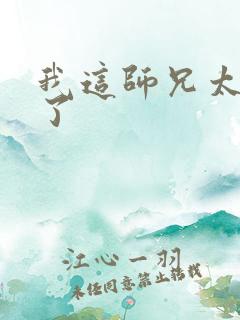 我這師兄太
了
江心一羽
未经同意禁止转载